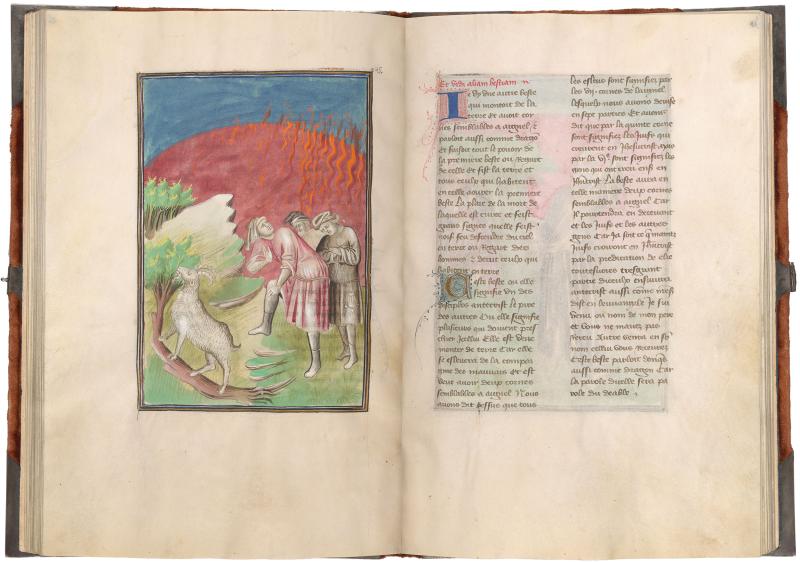 Et vidi aliam bestiam
Je vy une autre beste
qui montoit de la
terre et avoit cor
nes semblables a aignel, &
parloit aussi comme dragon
et faisoit tout le povoir de
la premiere beste ou regart
de celle et fist la terre et
tous ceulx qui habitent
en celle aourer la premiere
beste La plaie de la mort de
laquelle est curee et feist
grans signes quelle feist
feu descendre du ciel
en terre ou regart des
hommes & decut ceulx qui
habitent en terre
Ceste beste ou elle
signifie un des
disciples antecrist le pire
des autres Ou elle signifie
plusieurs qui doivent pres
cher icellui Elle est veue
monter de terre Car elle
se eslevera de la compai
gnie des mauvais et est
veue avoir deux cornes
semblables a aignel Nous
avons dit dessus que tous
les esleus sont signifiez par
les vij cornes de laignel
lesquelz nous avons devise
en sept parties Et avons
dit que par la quinte corne
sont signifiez les Juifs qui
creurent en Jhesucrist apres
par la vj.e sont signifiez les
gens qui ont creu aussi en
Jhucrist La beste aura en
telle maniere deux cornes
semblables a aignel Car
Il pourtendra en decevant
et les Juifs et les autres
gens Car Ja soit ce que maintz
Juifs croiront en Jhucrist
par la predication de elie
toutesvoies tresgrant
partie diceulx ensuivra
antecrist aussi come nre sr
dist en leuvangile Je sui
venu ou nom de mon pere
et vous ne mavez pas
receu Autre venra en son
nom cellui vous recevrez
Ceste beste parloit donques
aussi comme dragon Car
la parole dicelle sera pa
role du deable.